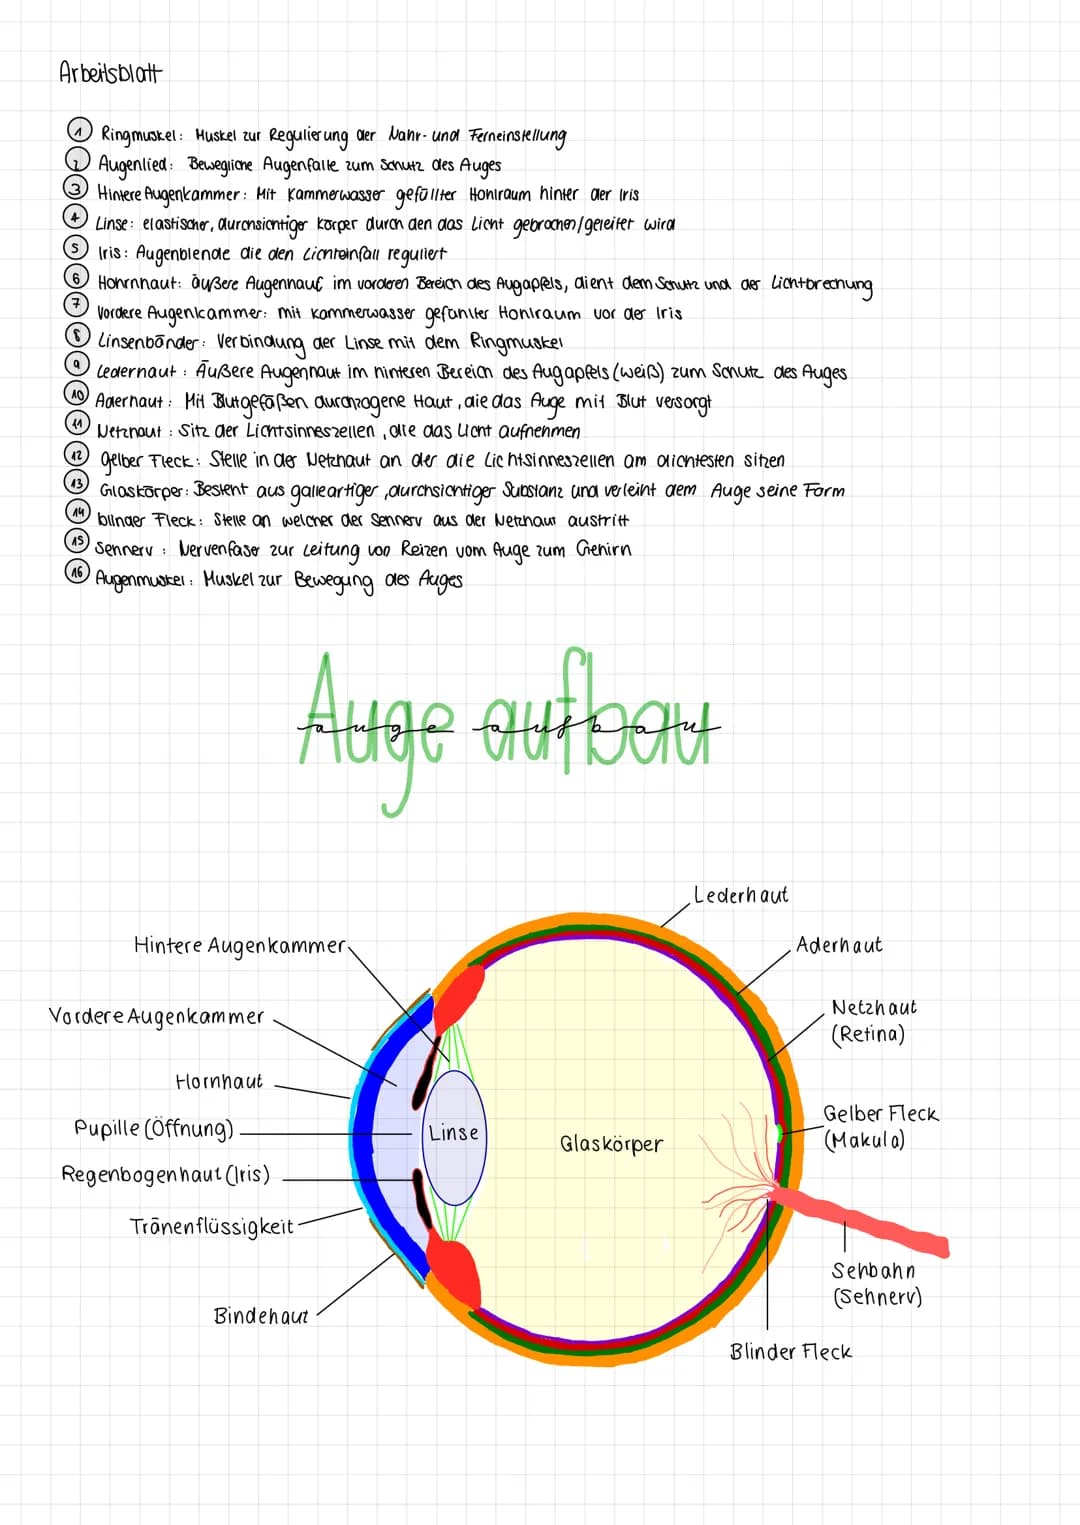 Arbeitsblatt
1 Ringmuskel: Muskel zur Regulierung der Nahr- und Ferneinstellung
2 Augenlied: Bewegliche Augenfalte zum Schutz des Auges
3 Hintere Augenkammer: Mit Kammerwasser gefüllter Hohlraum hinter der Iris
4 Linse: elastischer, durchsichtiger Körper durch den das Licht gebrochen/geleitet wird
5 Iris: Augenblende die den Lichteinfall reguliert
6 Hohrnhaut: äußere Augenhaut im vorderen Bereich des Augapfels, dient dem Schutz und der Lichtbrechung
7 Vordere Augenkammer: mit Kammerwasser gefühlter Hohlraum vor der Iris
8 Linsenbänder: Verbindung der Linse mit dem Ringmuskel
9 Lederhaut: Äußere Augenhaut im hinteren Bereich des Augapfels (weiß) zum Schutz des Auges
10 Aderhaut: Mit Blutgefäßen durchzogene Haut, die das Auge mit Blut versorgt
11 Netzhaut: Sitz der Lichtsinneszellen, die das Licht aufnehmen
12 gelber Fleck: Stelle in der Netzhaut an der die Lichtsinneszellen am dichtesten sitzen
13 Glaskörper: Besteht aus gallertartiger, durchsichtiger Substanz und verleiht dem Auge seine Form
14 blinder Fleck: Stelle an welcher der Sehnerv aus der Netzhaut austritt
15 Sehnerv: Nervenfaser zur Leitung von Reizen vom Auge zum Gehirn
16 Augenmuskel: Muskel zur Bewegung des Auges
Auge aufbau
auge aufbau
Lederhaut
Hintere Augenkammer
Aderhaut
Vordere Augenkammer
Netzhaut
(Retina)
Hornhaut
Pupille (Öffnung)
Linse
Glaskörper
Gelber Fleck
(Makula)
Regenbogenhaut (Iris)
Tränenflüssigkeit
Sehbahn
(Sehnerv)
Bindehaut
Blinder Fleck